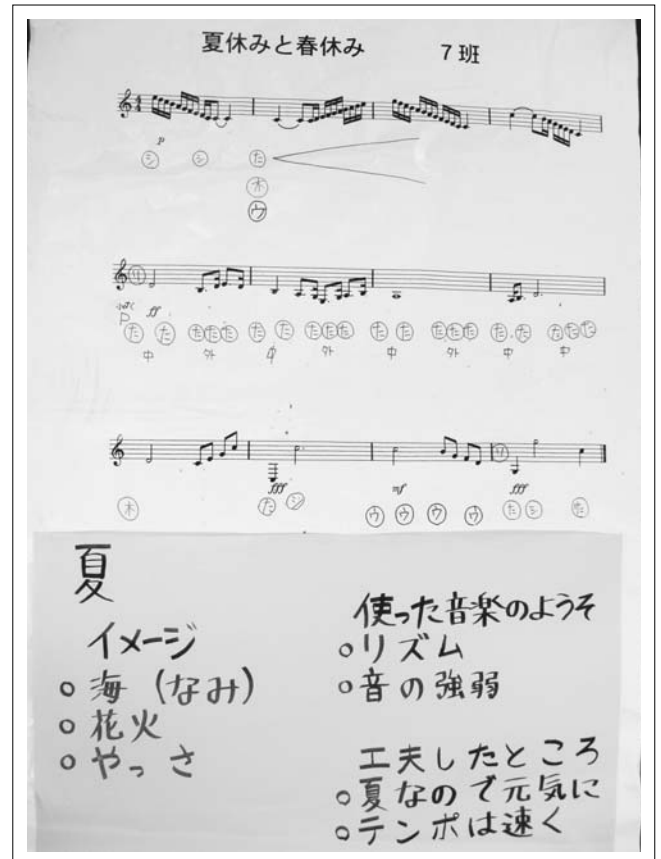 夏休みと春休み 7班
p
シ シ た
木
ウ
リ
p ff
た た たたた た た たたた た た たたた た た たたた
中 外 中 外 中 外 中 中
リ
fff mf fff
木 た シ ウ ウ ウ ウ た シ た
夏
イメージ
○海(なみ)
○花火
○やっさ
使った音楽のようそ
○リズム
○音の強弱
工夫したところ
○夏なので元気に
○テンポは速く